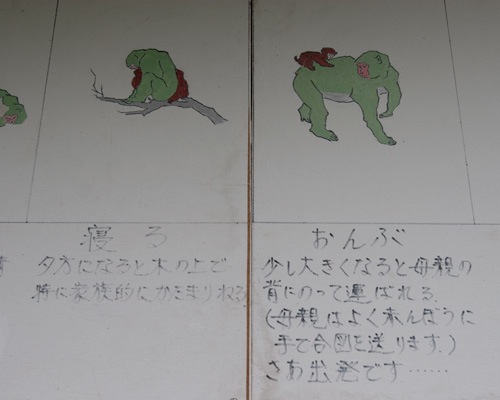 寝る
夕方になると木の上で
特に家族的にかたまりねる
おんぶ
少し大きくなると母親の
背にのって運ばれる。
(母親はよく赤んぼうに
手で合図を送ります.)
さあ出発です……